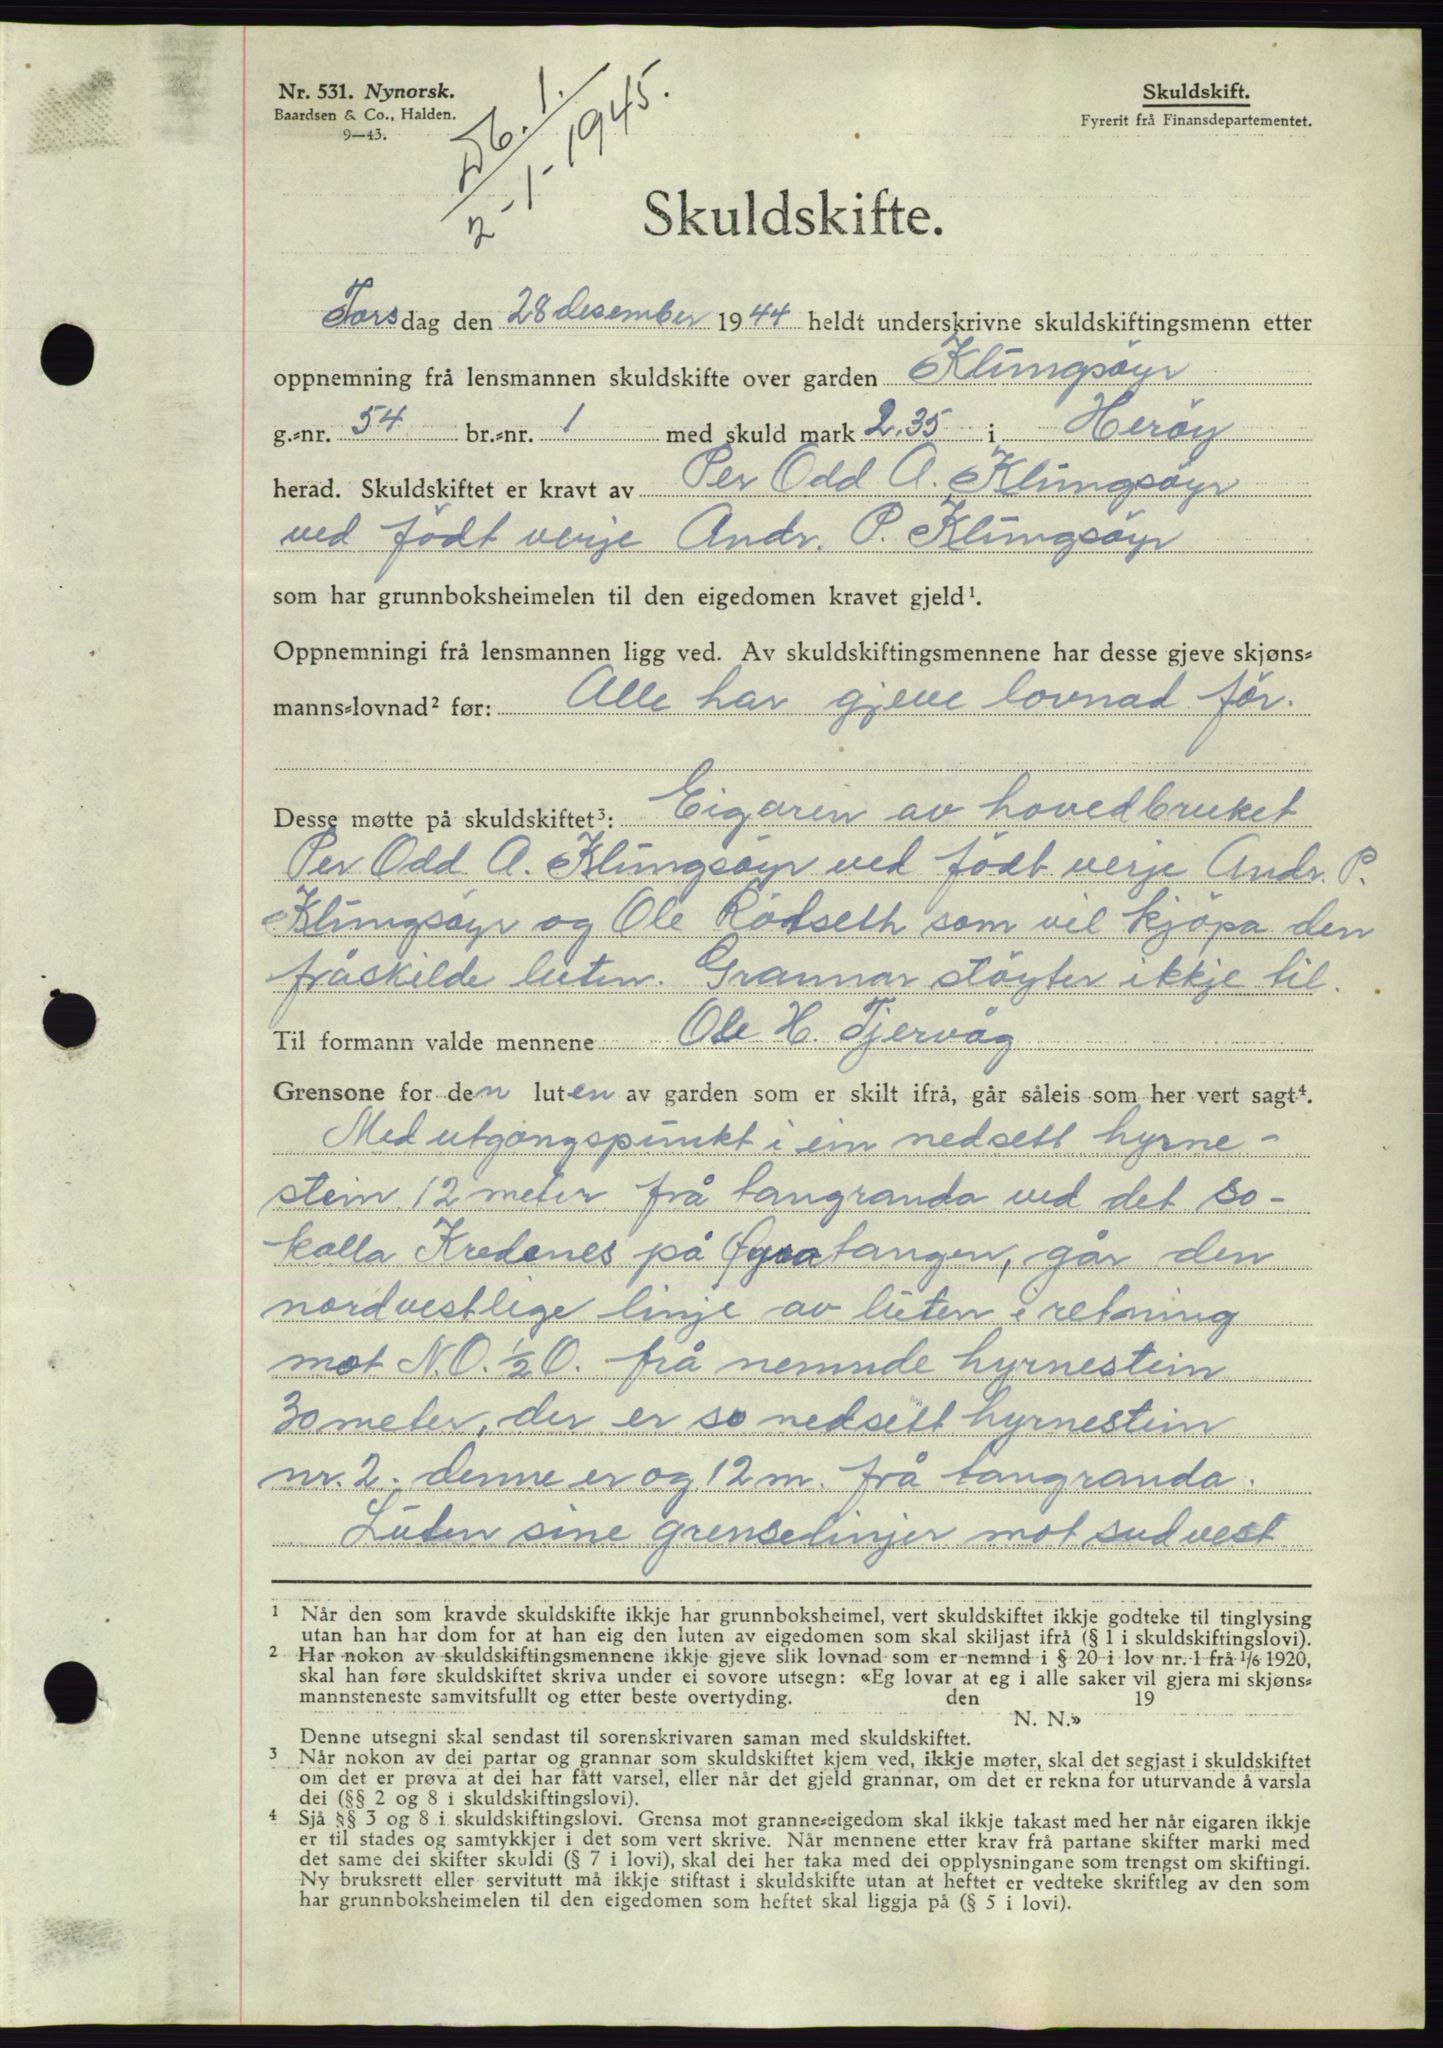 Nr. 531. Nynorsk.
Baardsen & Co., Halden.
9—43.
Db. 1.
2-1-1945.
Skuldskift.
Fyrerit frå Finansdepartementet.
Skuldskifte.
Torsdag den 28 desember 1944 heldt underskrivne skuldskiftingsmenn etter
oppnemning frå lensmannen skuldskifte over garden Klungsöyr
g.=nr. 54 br.=nr. 1 med skuld mark 2.35 i Heröy
herad. Skuldskiftet er kravt av Per Odd A. Klungsöyr
ved födt verje Andr. P. Klungsöyr
som har grunnboksheimelen til den eigedomen kravet gjeld¹.
Oppnemningi frå lensmannen ligg ved. Av skuldskiftingsmennene har desse gjeve skjøns=
manns=lovnad² før: Alle har gjeve lovnad för.
Desse møtte på skuldskiftet³: Eigaren av hovedbruket
Per Odd A. Klungsöyr ved födt verje Andr. P.
Klungsöyr og Ole Rödseth som vil kjöpa den
fråskilde luten. Grannar stöyter ikkje til.
Til formann valde mennene Ole H. Tjervåg
Grensone for den luten av garden som er skilt ifrå, går såleis som her vert sagt⁴.
Med utgangspunkt i ein nedsett hyrne-
stein 12 meter frå tangranda ved det so-
kalla Kredenes på tangen, går den
nordvestlige linje av luten i retning
mot N.O. ½ O. frå nemnde hyrnestein
30 meter, der er so nedsett hyrnestein
nr. 2. denne er og 12 m. frå tangranda.
Luten sine grenselinjer mot sudvest
1 Når den som kravde skuldskifte ikkje har grunnboksheimel, vert skuldskiftet ikkje godteke til tinglysing
utan han har dom for at han eig den luten av eigedomen som skal skiljast ifrå (§ 1 i skuldskiftingslovi).
2 Har nokon av skuldskiftingsmennene ikkje gjeve slik lovnad som er nemnd i § 20 i lov nr. 1 frå 1/6 1920,
skal han føre skuldskiftet skriva under ei sovore utsegn: «Eg lovar at eg i alle saker vil gjera mi skjøns=
mannsteneste samvitsfullt og etter beste overtyding. den 19
N. N.»
Denne utsegni skal sendast til sorenskrivaren saman med skuldskiftet.
3 Når nokon av dei partar og grannar som skuldskiftet kjem ved, ikkje møter, skal det segjast i skuldskiftet
om det er prøva at dei har fått varsel, eller når det gjeld grannar, om det er rekna for uturvande å varsla
dei (§§ 2 og 8 i skuldskiftingslovi).
4 Sjå §§ 3 og 8 i skuldskiftingslovi. Grensa mot granne=eigedom skal ikkje takast med her når eigaren ikkje
er til stades og samtykkjer i det som vert skrive. Når mennene etter krav frå partane skifter marki med
det same dei skifter skuldi (§ 7 i lovi), skal dei her taka med dei opplysningane som trengst om skiftingi.
Ny bruksrett eller servitutt må ikkje stiftast i skuldskifte utan at heftet er vedteke skriftleg av den som
har grunnboksheimelen til den eigedomen som heftet skal liggja på (§ 5 i lovi).